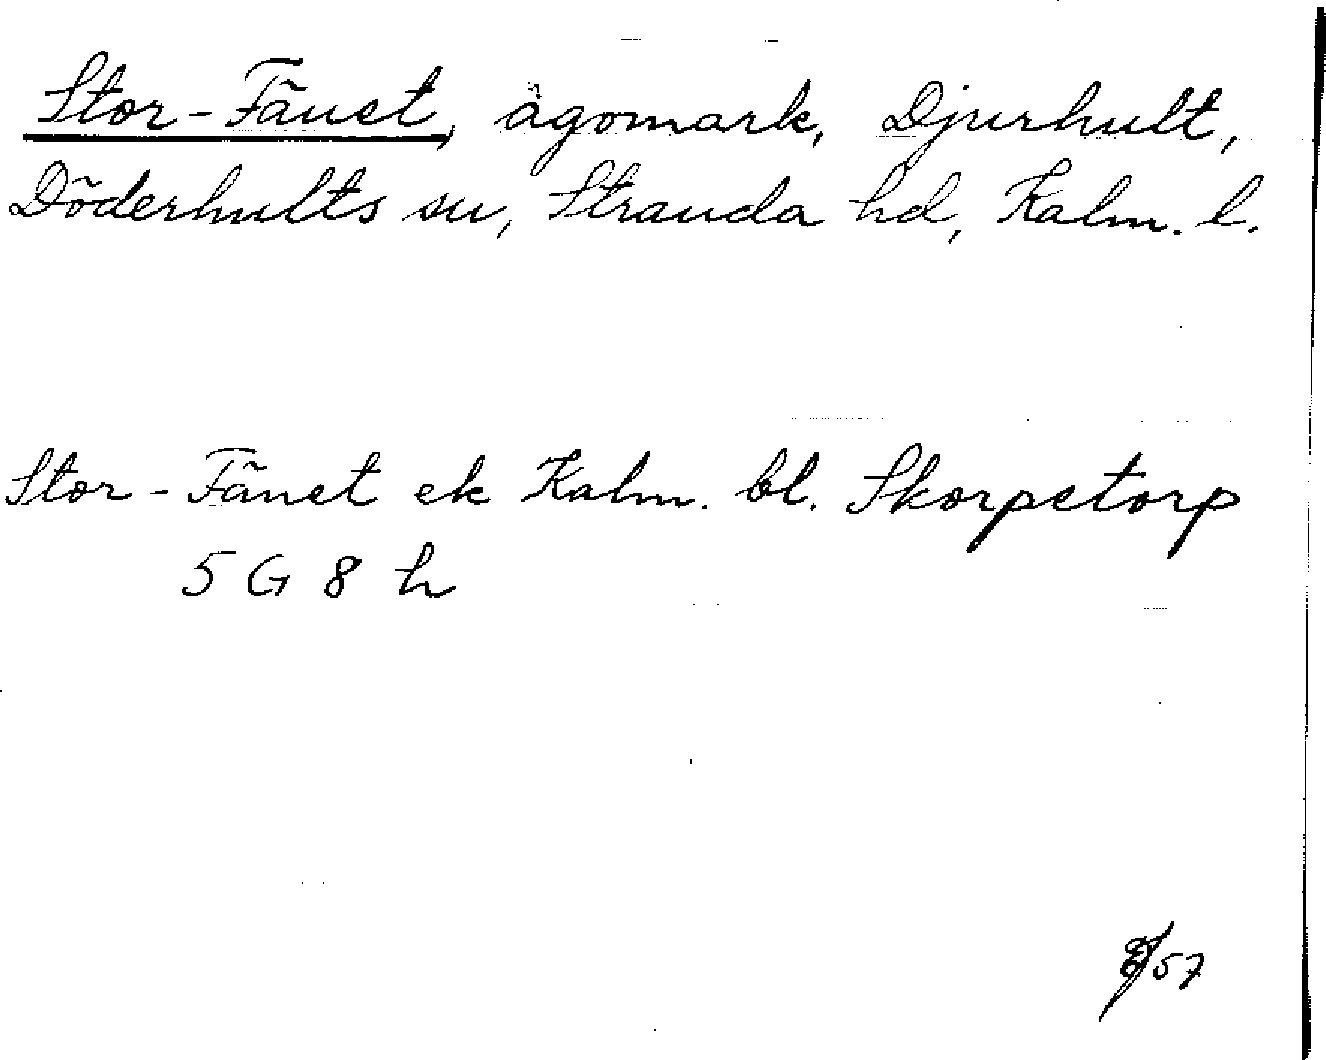 Stor-Fänet, ägomark, Djurhult,
Döderhults sn, Stranda hd, Kalm. l.
Stor-Fänet ek Kalm. bl. Skorpetorp
5 G 8 h
/57